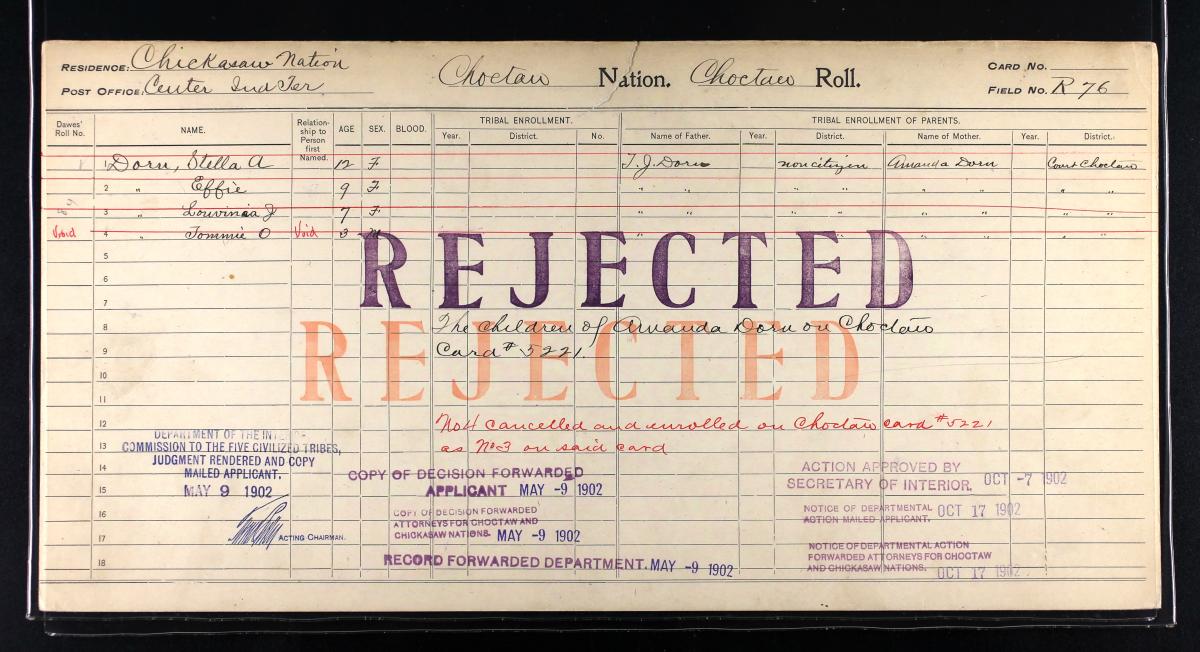 RESIDENCE: Chickasaw Nation
POST OFFICE: Center Ind Ter
Choctaw Nation. Choctaw Roll.
CARD NO.
FIELD NO. R 76
Dawes' Roll No.
NAME.
Relationship to Person first Named.
AGE
SEX.
BLOOD.
TRIBAL ENROLLMENT.
Year. District. No.
TRIBAL ENROLLMENT OF PARENTS.
Name of Father. Year. District. Name of Mother. Year. District.
1 Dorn, Stella A 12 F T. J. Dorn noncitizen Amanda Dorn Court Choctaw
2 " Effie 9 F " " " " " " " "
3 " Louvinia J 7 F " " " " " " " "
Void 4 " Tommie O Void 3 M " " " " " " " "
5
REJECTED
6
7
8 The children of Amanda Dorn on Choctaw
9 Card # 5221.
REJECTED
10
11
12 No4 cancelled and enrolled on Choctaw card #5221
13 as No3 on said card
DEPARTMENT OF THE INTERIOR
COMMISSION TO THE FIVE CIVILIZED TRIBES,
JUDGMENT RENDERED AND COPY
MAILED APPLICANT.
MAY 9 1902
ACTING CHAIRMAN.
14
15
16
17
18
COPY OF DECISION FORWARDED
APPLICANT MAY -9 1902
COPY OF DECISION FORWARDED
ATTORNEYS FOR CHOCTAW AND
CHICKASAW NATIONS. MAY -9 1902
RECORD FORWARDED DEPARTMENT. MAY -9 1902
ACTION APPROVED BY
SECRETARY OF INTERIOR. OCT -7 1902
NOTICE OF DEPARTMENTAL
ACTION MAILED APPLICANT. OCT 17 1902
NOTICE OF DEPARTMENTAL ACTION
FORWARDED ATTORNEYS FOR CHOCTAW
AND CHICKASAW NATIONS. OCT 17 1902